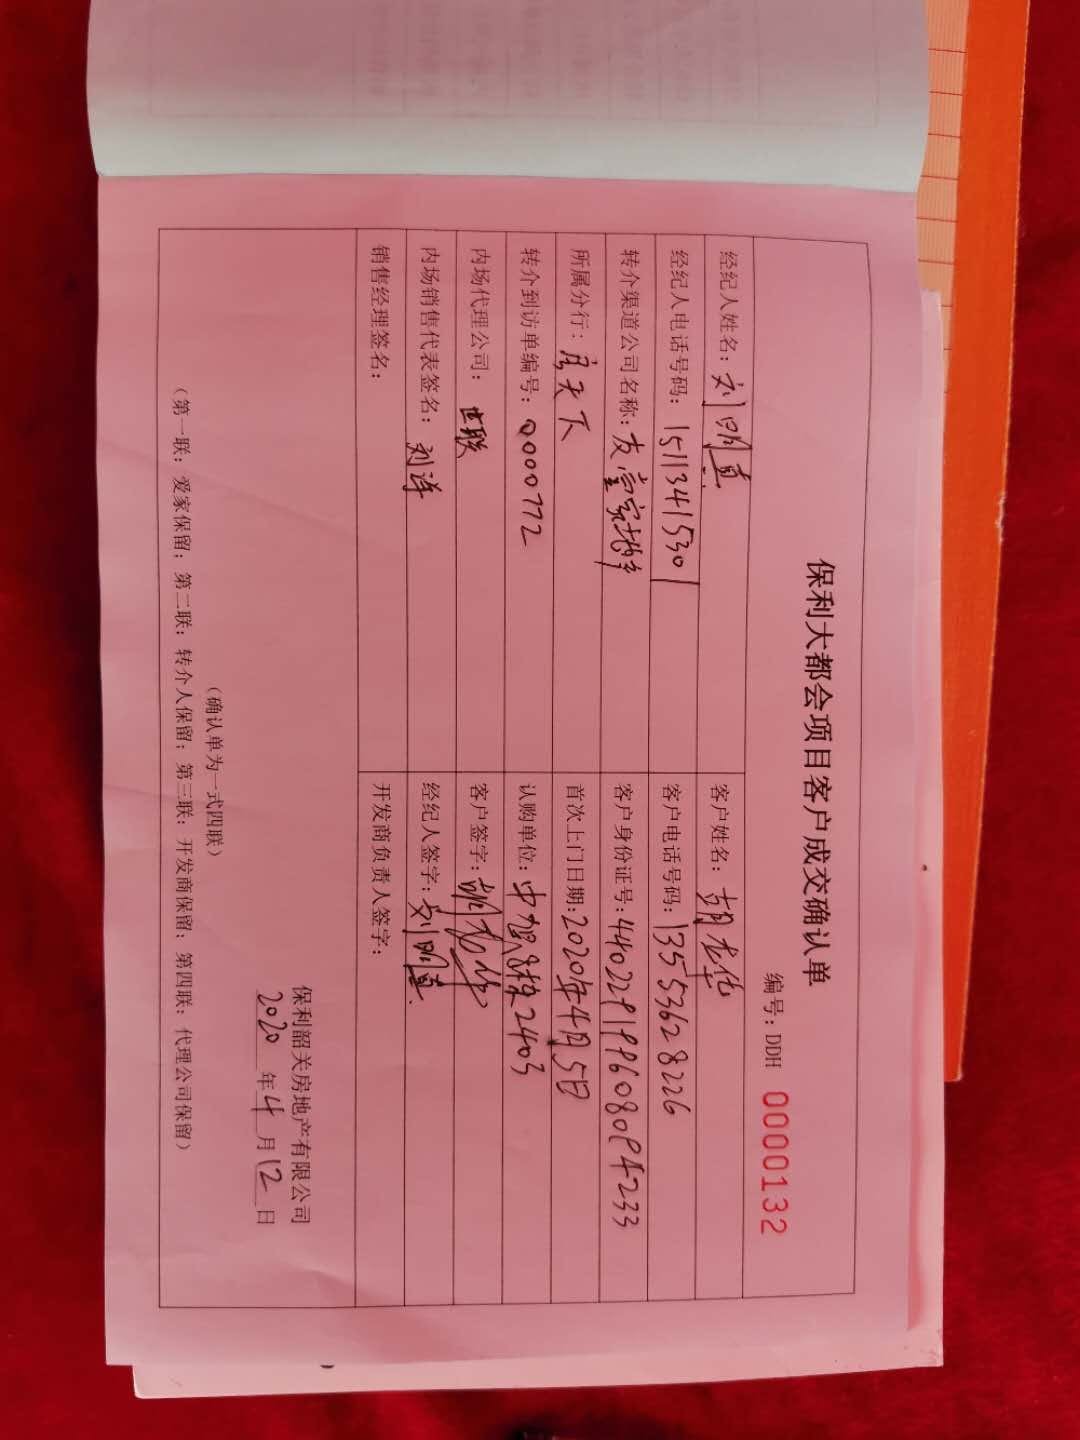 保利大都会项目客户成交确认单
编号：DDH 0000132
经纪人姓名：刘明 客户姓名：胡龙华
经纪人电话号码：15113415301 客户电话号码：13553628226
转介渠道公司名称：友 客户身份证号：440229199608094233
所属分行：房天下 首次上门日期：2020年4月5日
转介到访单编号：0000772 认购单位：中 2403
内场代理公司：世联 客户签字：胡龙华
内场销售代表签名：刘洋 经纪人签字：刘明
销售经理签名： 开发商负责人签字：
保利韶关房地产有限公司
2020年4月12日
（确认单为一式四联）
（第一联：爱家保留；第二联：转介人保留；第三联：开发商保留；第四联：代理公司保留）